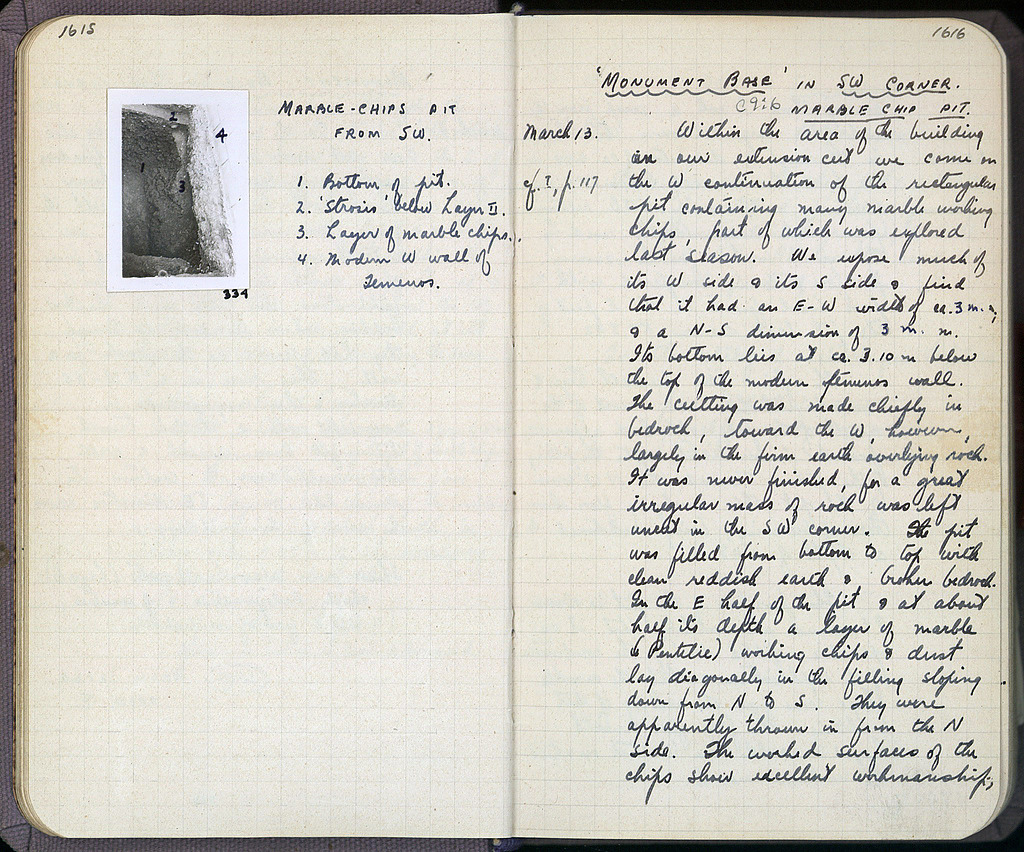 1615
2
4
1
3
334
MARBLE-CHIPS PIT
FROM SW.
1. Bottom of pit.
2. 'Strosis' below Layer II.
3. Layer of marble chips.
4. Modern W wall of
Temenos.
1616
'MONUMENT BASE' IN SW CORNER.
C9:6 MARBLE CHIP PIT.
March 13.
cf. I, p. 117
Within the area of the building
in our extension cut we come on
the W continuation of the rectangular
pit containing many marble working
chips, part of which was explored
last season. We expose much of
its W side & its S side & find
that it had an E-W width of ca. 3 m.
& a N-S dimension of 3 m. m.
Its bottom lies at ca. 3.10 m below
the top of the modern temenos wall.
The cutting was made chiefly in
bedrock, toward the W, however,
largely in the firm earth overlying rock.
It was never finished, for a great
irregular mass of rock was left
uncut in the SW corner. The pit
was filled from bottom to top with
clean reddish earth & broken bedrock.
In the E half of the pit & at about
half its depth a layer of marble
(Pentelic) working chips & dust
lay diagonally in the filling sloping
down from N to S. They were
apparently thrown in from the N
side. The worked surfaces of the
chips show excellent workmanship;